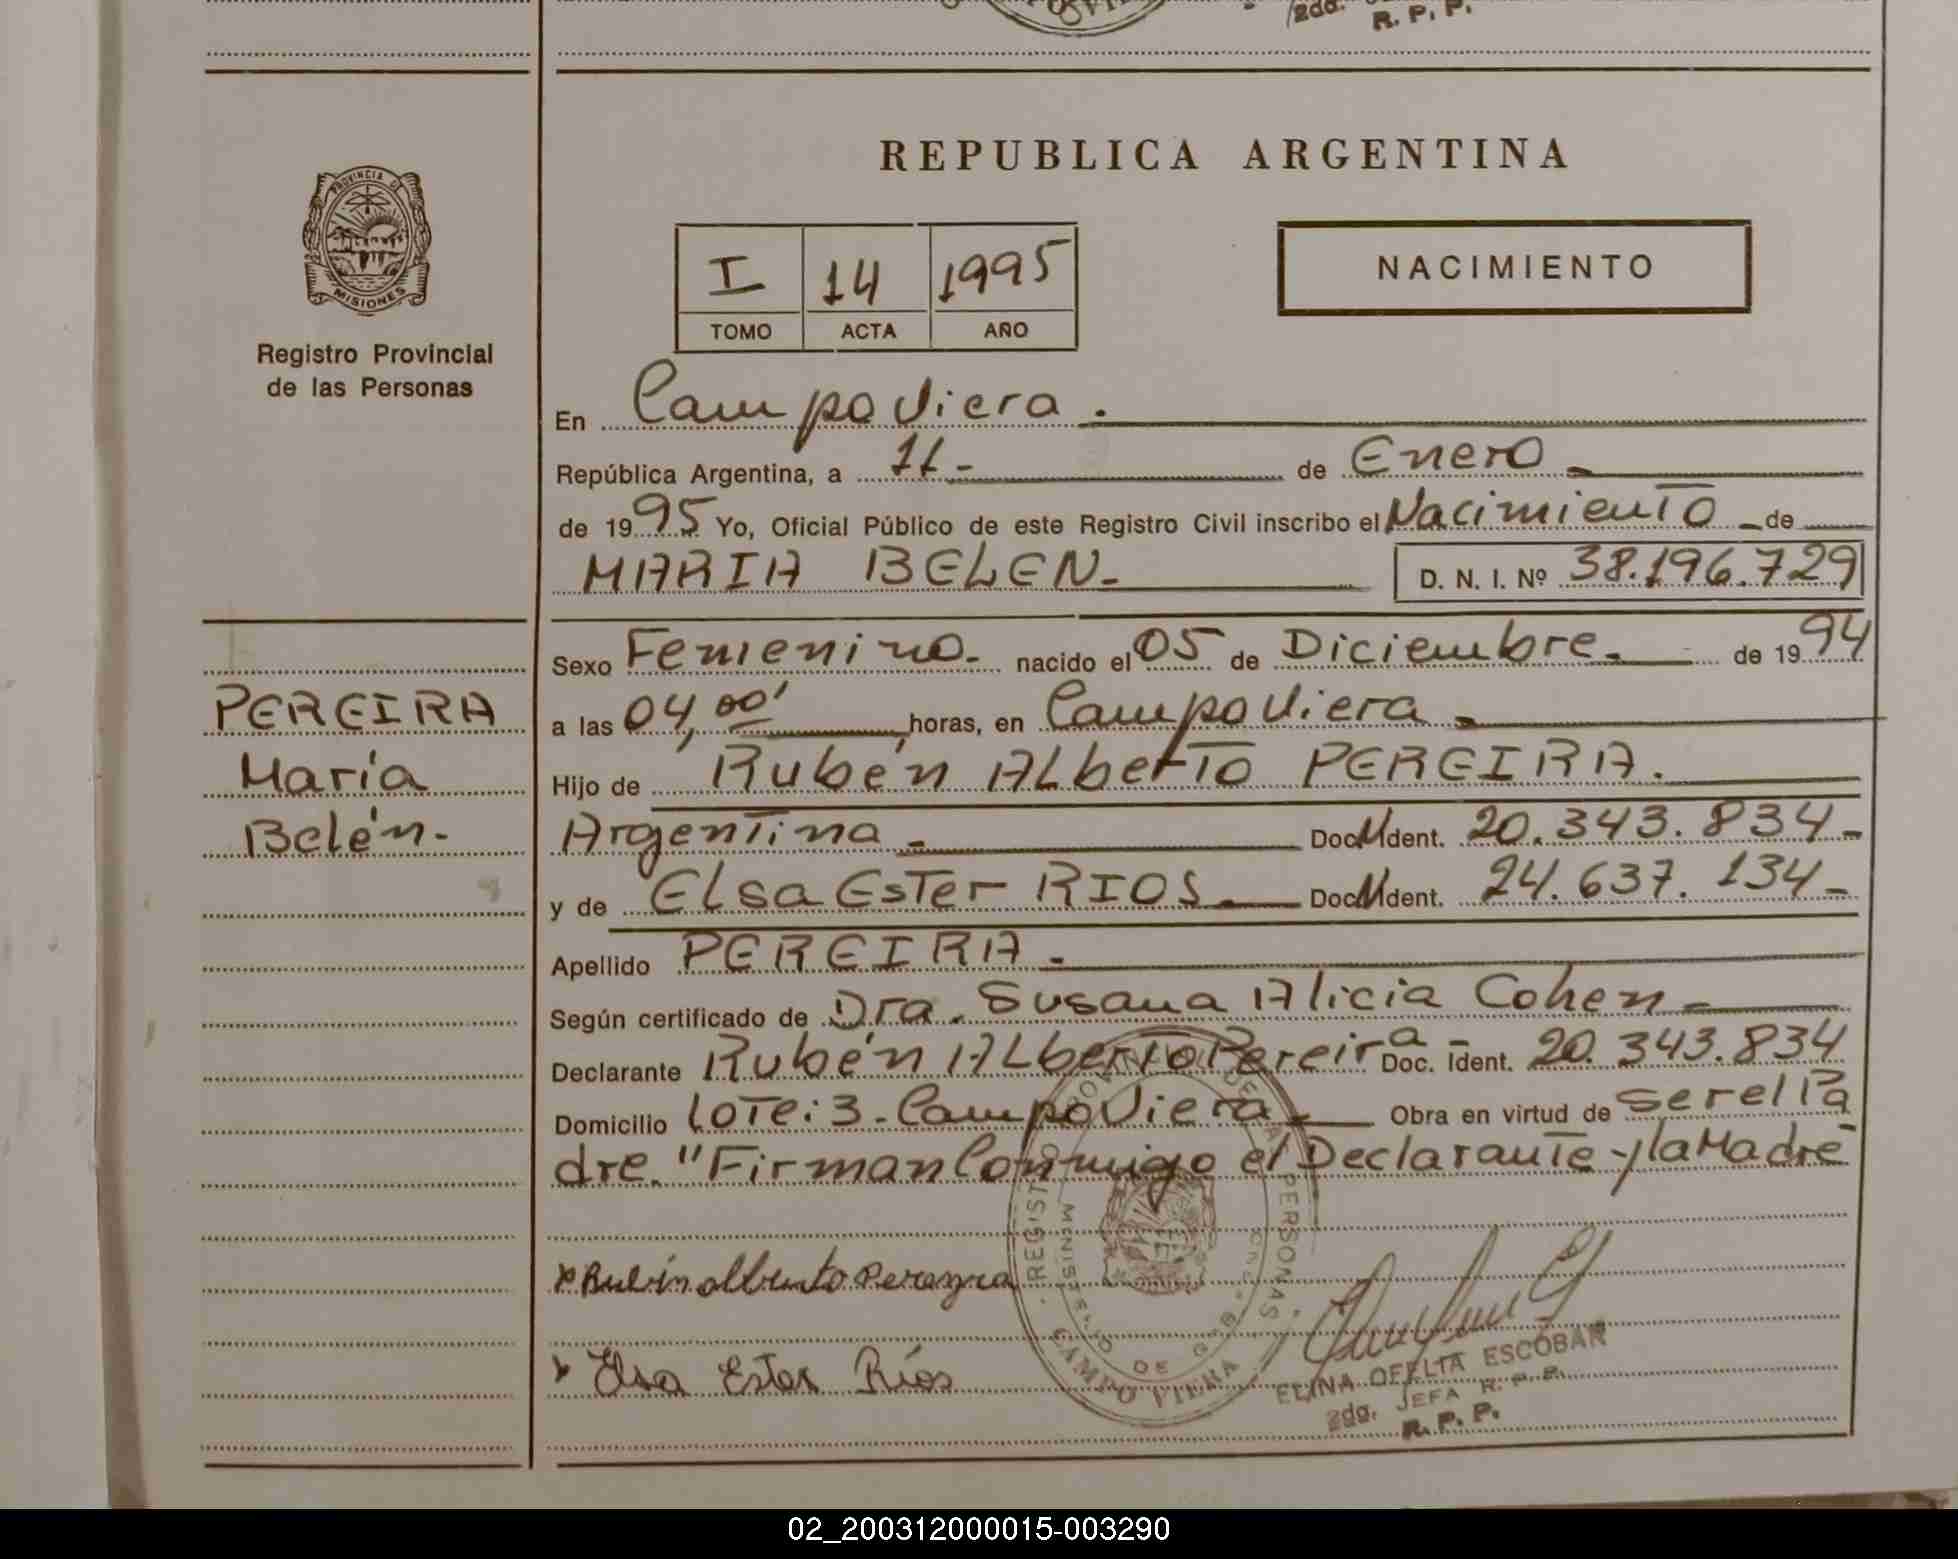 2do.
R. P. P.
REPUBLICA ARGENTINA
PROVINCIA DE
MISIONES
Registro Provincial
de las Personas
I 14 1995
TOMO ACTA AÑO
NACIMIENTO
En Campo Viera.
República Argentina, a 11- de Enero-
de 1995 Yo, Oficial Público de este Registro Civil inscribo el Nacimiento de
MARIA BELEN- D. N. I. Nº 38.196.729
Sexo Femenino- nacido el 05 de Diciembre- de 1994
PEREIRA
María
Belén-
a las 04,00' horas, en Campo Viera-
Hijo de Rubén ALberTo PEREIRA.
ArgenTina- Doc. Ident. 20.343.834-
y de ELsa EsTer RIOS- Doc. Ident. 24.637.134-
Apellido PEREIRA-
Según certificado de Dra. Susana Alicia Cohen-
Declarante Rubén ALberTo Pereira- Doc. Ident. 20.343.834
Domicilio LoTe: 3- Campo Viera- Obra en virtud de ser el Pa
dre. "Firman Conmigo el DeclaranTe y la Madre
REGISTRO PROVINCIAL DE LAS PERSONAS
MINISTERIO DE GOB
CAMPO VIERA
x Rubén Alberto Pereyra
x Elsa Ester Ríos
ELINA OFELIA ESCOBAR
2da. JEFA R. P. P.
R. P. P.
02_200312000015-003290